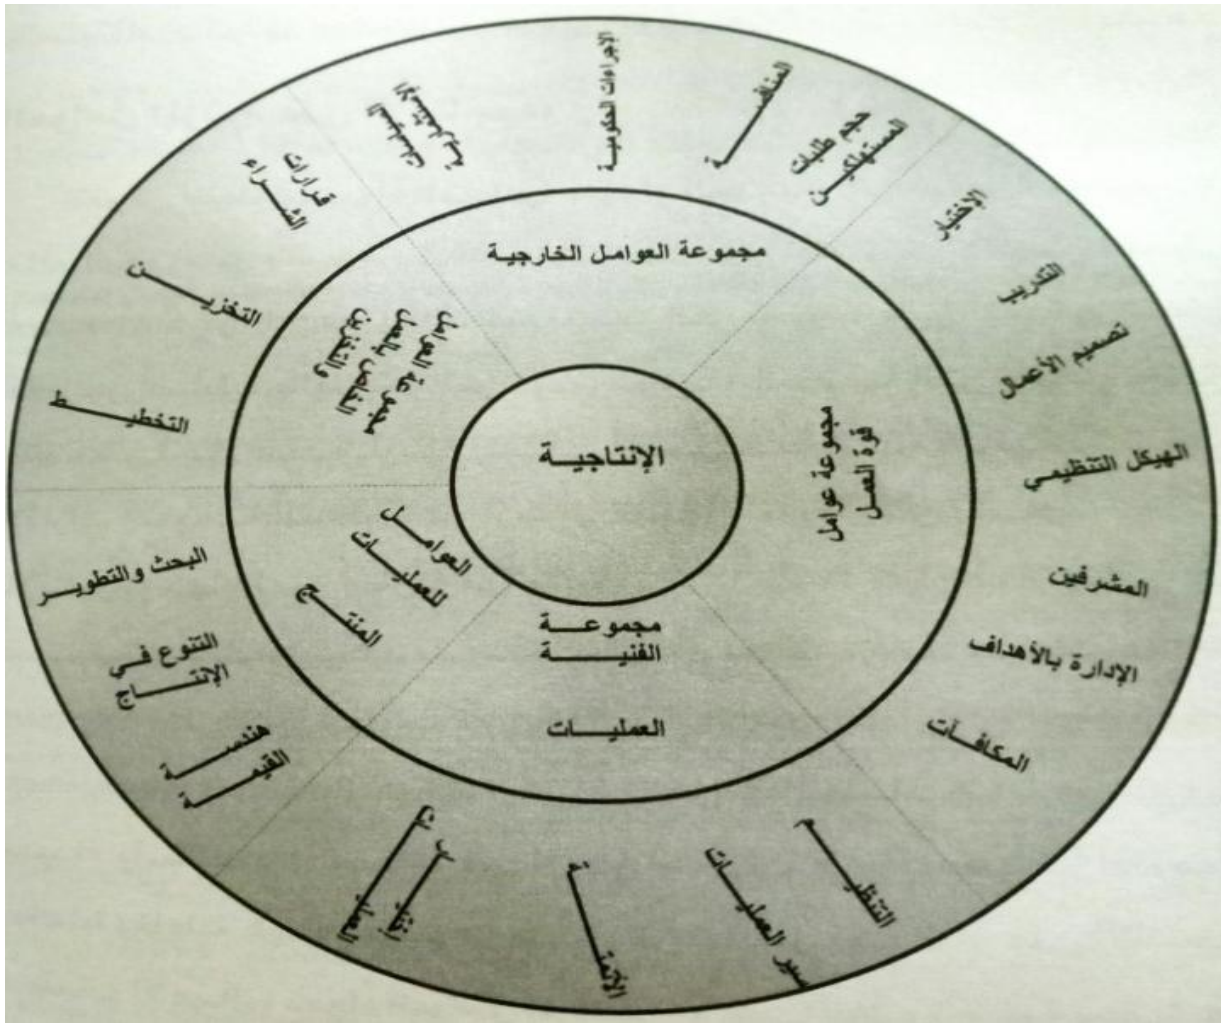 الإنتاجيـة
مجموعة العوامل الخارجية
مجموعة عوامل
قوة العمل
مجموعة
الفنية
العمليات
العوامل
للعمليات
المنتج
مجموعة العوامل
الخاص بالعمل
والتخزين
الإجراءات الحكومية
المنافسة
حجم طلبات
المستهلكين
الإختيار
التدريب
تصميم الأعمال
الهيكل التنظيمي
المشرفين
الإدارة بالأهداف
المكافآت
التنظيم
سير العمليات
الأتمتة
إختيار
العمليات
هندسة
القيمة
التنوع في
الإنتاج
البحث والتطوير
التخطيط
التخزين
قرارات
الشراء
السياسات
الاستثمارية